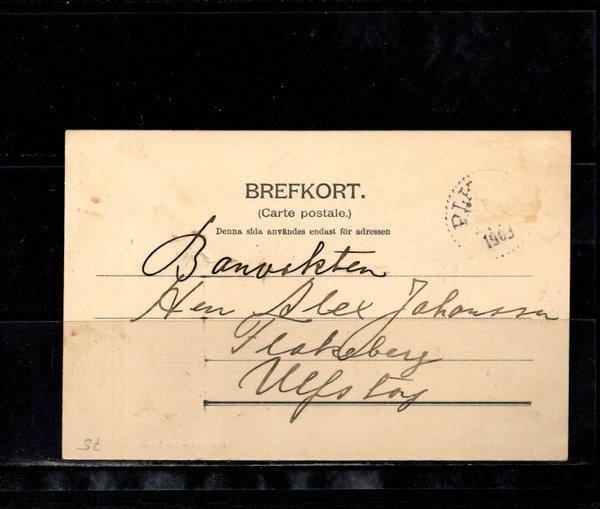 BREFKORT.
(Carte postale.)
Denna sida användes endast för adressen
Banvakten
Herr Alex Johansson
Flakeberg
Ulfstorp
PLA
1903
St